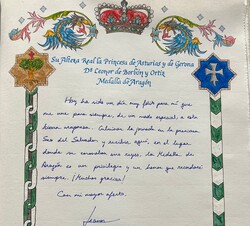 Su Alteza Real la Princesa de Asturias y de Gerona
Dª Leonor de Borbón y Ortiz
Medalla de Aragón
Hoy ha sido un día muy feliz para mí que
me une para siempre, de un modo especial, a esta
tierra aragonesa. Culminar la jornada en la preciosa
Seo del Salvador y recibir aquí, en el lugar
donde se coronaban sus reyes, la Medalla de
Aragón es un privilegio y un honor que recordaré
siempre. ¡Muchas gracias!
Con mi mayor afecto,
Leonor